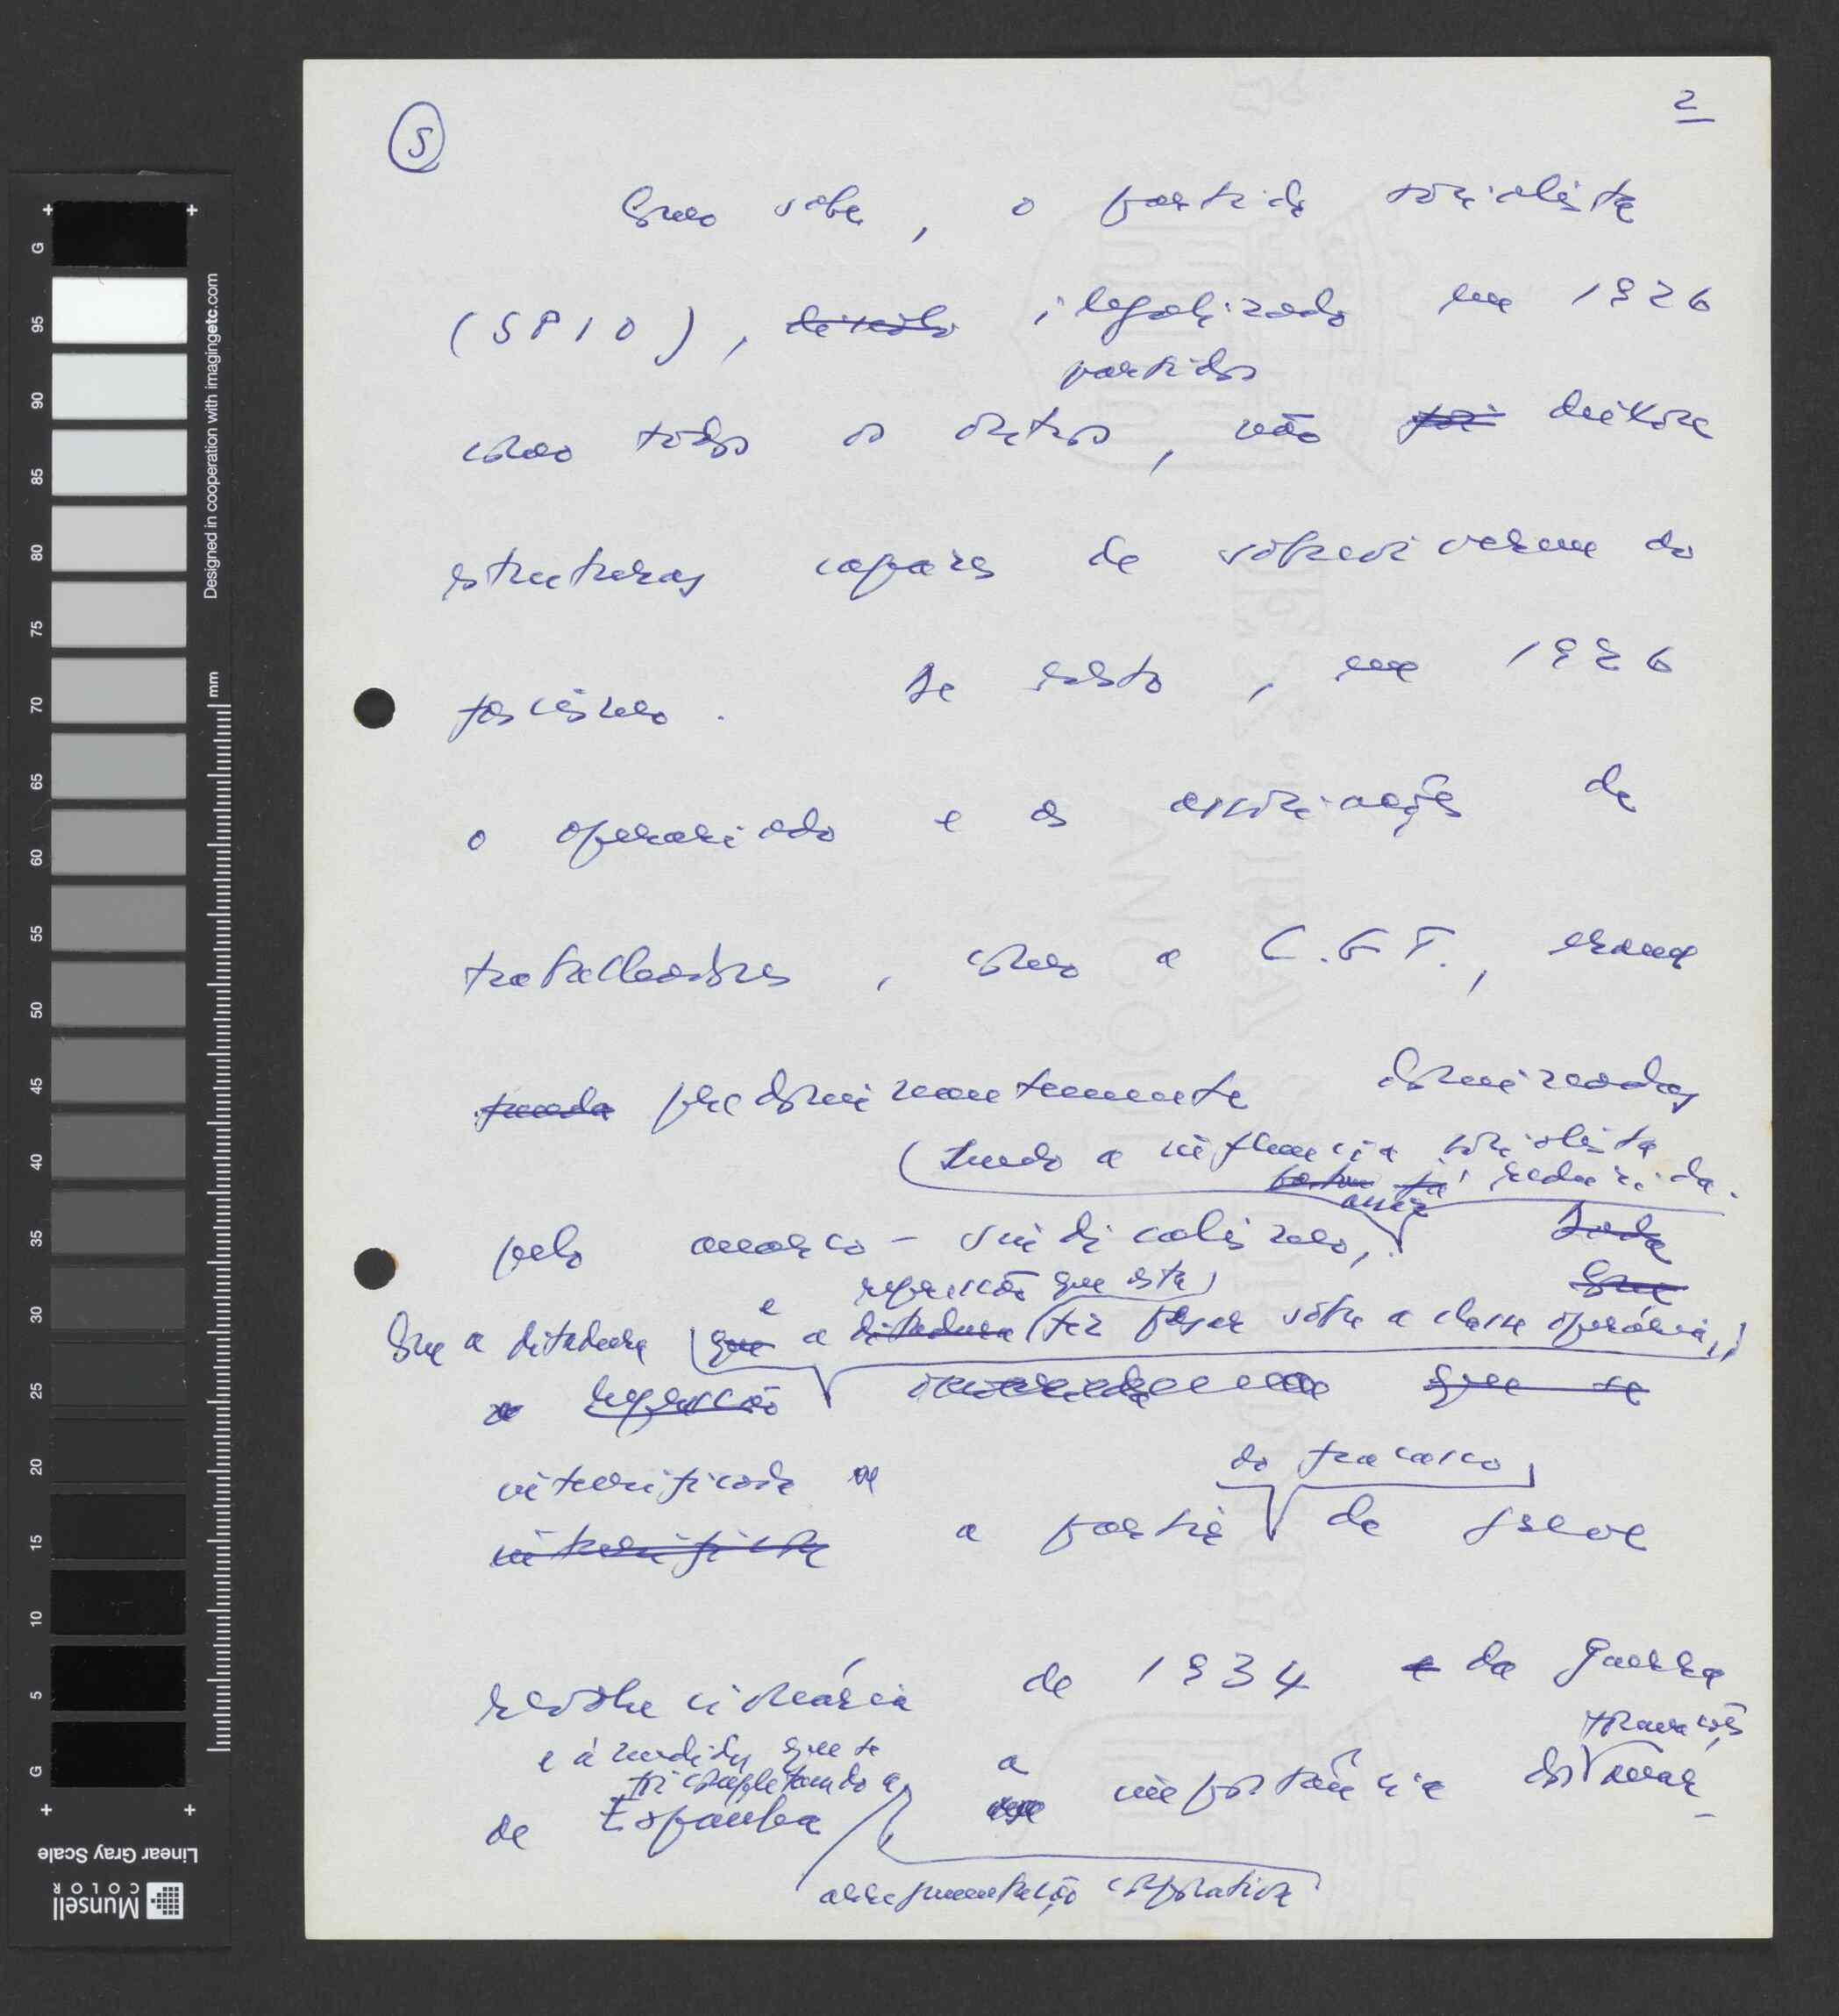 5
2
Como sabe, o partido socialista
(SPIO), ilegalizado em 1926
partidos
como todos os outros, não foi deixou
estruturas capazes de sobreviverem ao
fascismo. De resto, em 1926
o operariado e as associações de
trabalhadores, como a C.G.T., eram
predominantemente dominadas
(sendo a influência socialista
já reduzida.
pelo anarco-sindicalismo,
Com a ditadura e a repressão que esta
que a ditadura fez pesar sobre a classe operária,
a repressão que se
intensificada
a partir do fracasso da greve
revolucionária de 1934 e da guerra
e à medida que se
foi completando a
de Espanha a importância dos anar-
arregimentação corporativa
G 95 90 85 80 75 70 65 60 55 50 45 40 35 30 25 20 15 10 5 G
mm
Designed in cooperation with imagingetc.com
Linear Gray Scale
Munsell
COLOR